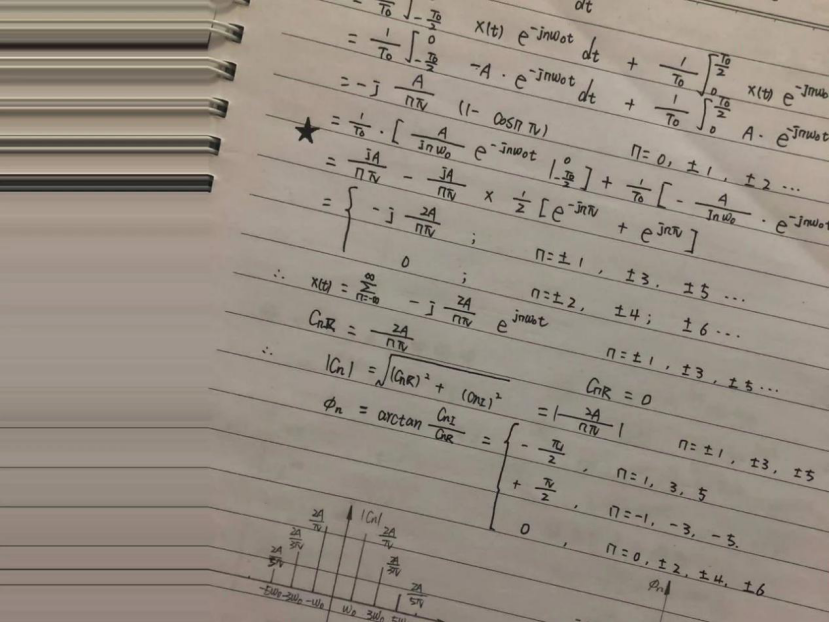 dt
= 1/T₀ ∫_{-T₀/2} x(t) e^{-jnω₀t} dt + 1/T₀ ∫₀^{T₀/2} x(t) e^{-jnω₀
= 1/T₀ ∫_{-T₀/2}^0 -A · e^{-jnω₀t} dt + 1/T₀ ∫₀^{T₀/2} A · e^{-jnω₀t
= -j A/nπ (1 - cosnπ) n = 0, ±1, ±2 ...
★ = 1/T₀ · [ A/jnω₀ e^{-jnω₀t} |_{-T₀/2}^0 ] + 1/T₀ [ - A/jnω₀ · e^{-jnω₀t
= jA/nπ - jA/nπ × 1/2 [ e^{-jnπ} + e^{jnπ} ]
= { -j 2A/nπ ; n = ±1, ±3, ±5 ...
0 ; n = ±2, ±4; ±6 ...
∴ x(t) = ∑_{n=-∞}^∞ -j 2A/nπ e^{jnω₀t} n = ±1, ±3, ±5 ...
CnR = 2A/nπ CnR = 0
∴ |Cn| = √((CnR)² + (CnI)²) = |2A/nπ| n = ±1, ±3, ±5
φn = arctan CnI/CnR = { - π/2, n = 1, 3, 5
+ π/2, n = -1, -3, -5.
0, n = 0, ±2, ±4, ±6
|Cn| φn
2A/π 2A/π
2A/3π 2A/3π
2A/5π 2A/5π
-5ω₀ -3ω₀ -ω₀ ω₀ 3ω₀